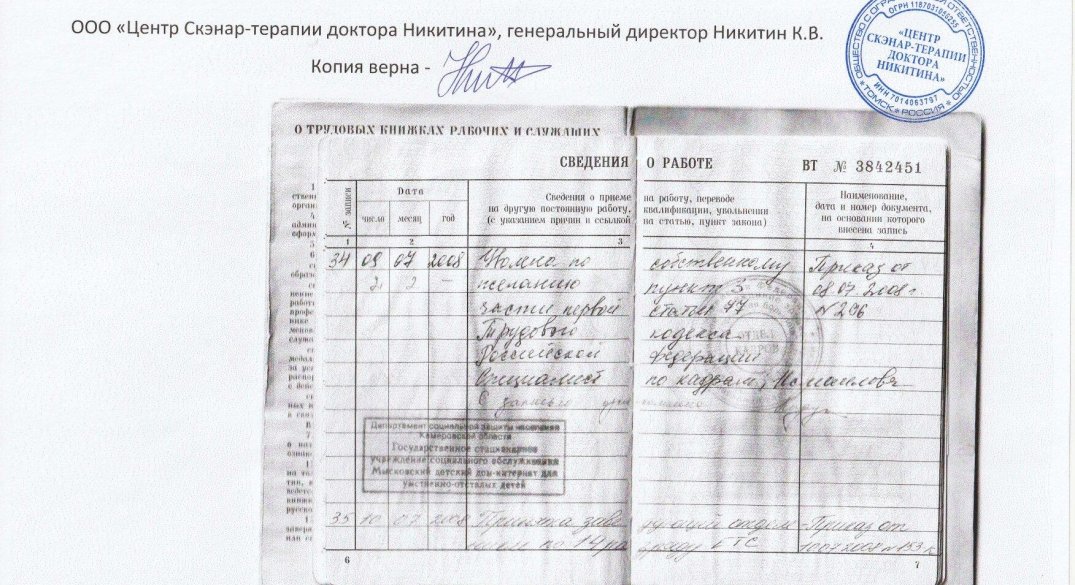 ООО «Центр Скэнар-терапии доктора Никитина», генеральный директор Никитин К.В.
Копия верна -
ОГРН 1187031050255
«ЦЕНТР
СКЭНАР-ТЕРАПИИ
ДОКТОРА
НИКИТИНА»
ИНН 7014063797
* ТОМСК * РОССИЯ *
О ТРУДОВЫХ КНИЖКАХ РАБОЧИХ И СЛУЖАЩИХ
СВЕДЕНИЯ О РАБОТЕ ВТ № 3842451
№ записи
Дата
число месяц год
Сведения о приеме на работу, переводе
на другую постоянную работу, квалификации, увольнении
(с указанием причин и ссылкой на статью, пункт закона)
Наименование,
дата и номер документа,
на основании которого
внесена запись
1 2 3 4
34 08 07 2008 Уволена по собственному Приказ от
желанию пункт 3 08 07 2008 г
части первой статьи 77 № 296
Трудового кодекса
Российской Федерации
Специалист по кадрам
Департамент социальной защиты населения
Кемеровской области
Государственное стационарное
учреждение социального обслуживания
Мысковский детский дом-интернат для
умственно-отсталых детей
35 10 07 2008 Принята заведующей отделением Приказ от
по 14
6 7